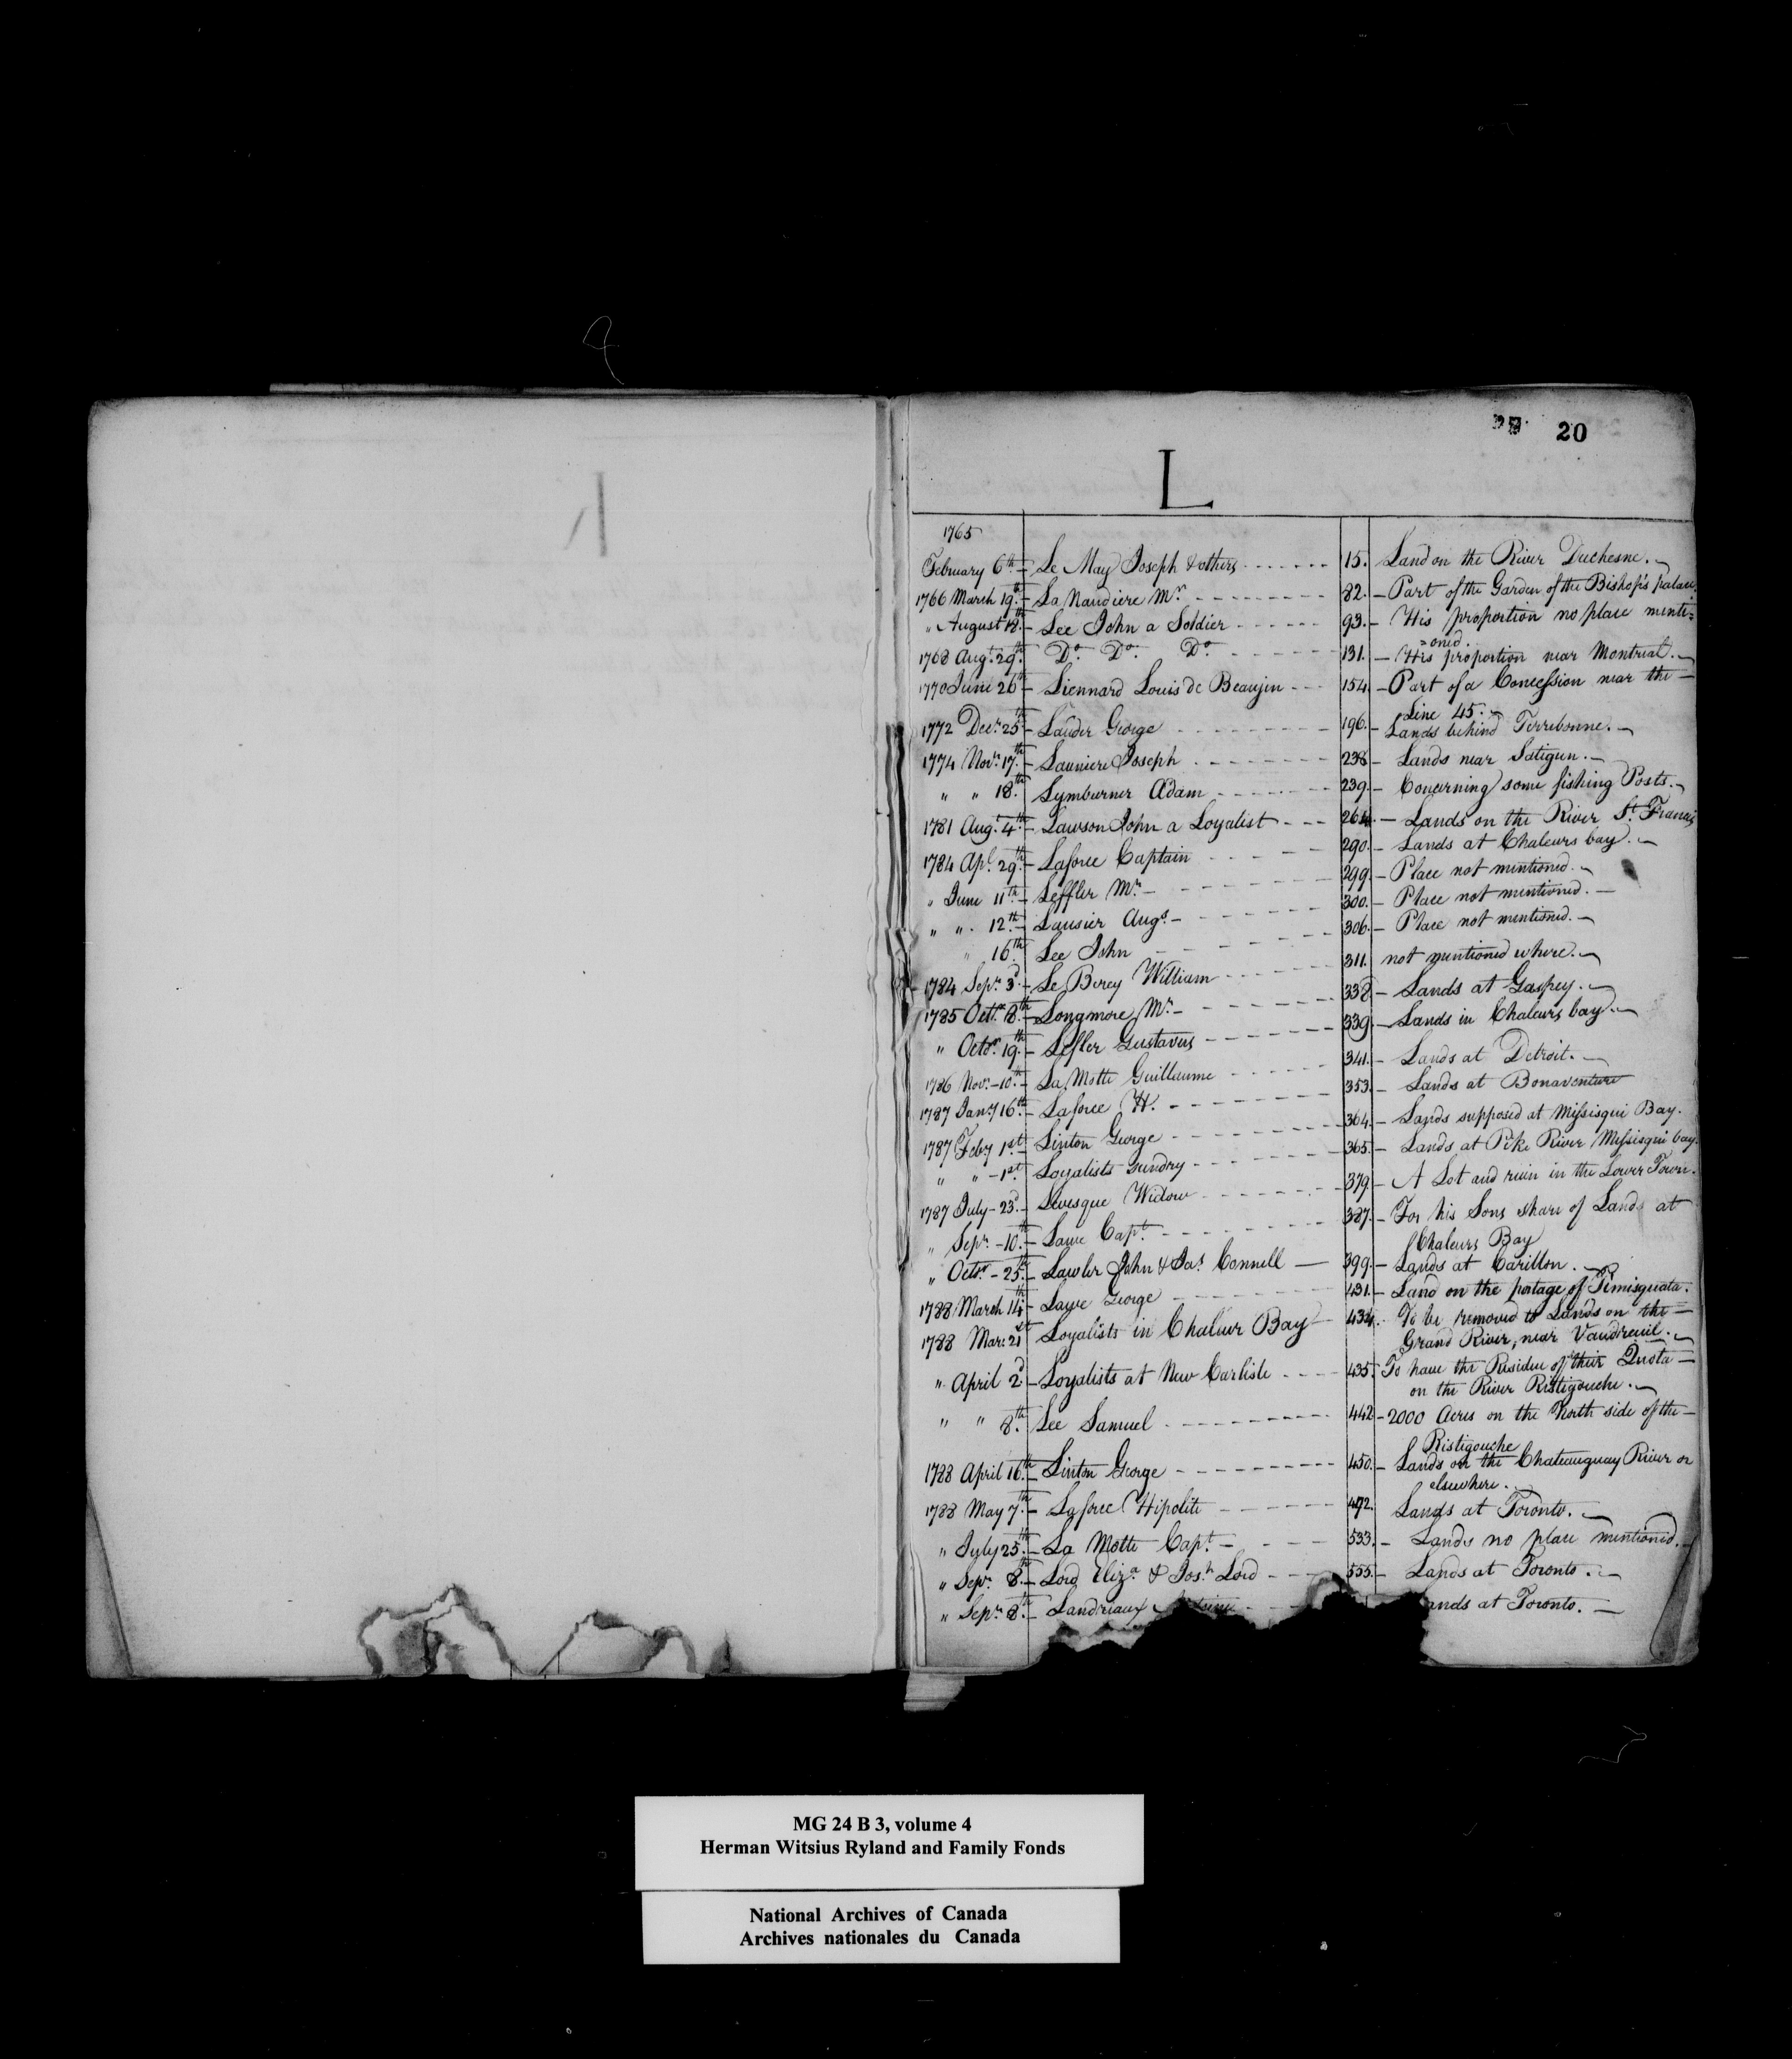 20
L
1765
February 6th - Le May Joseph & others - 15. Land on the River Duchesne.
1766 March 19th - La Naudiere Mr. - 82. - Part of the Garden of the Bishop's palace.
" August 18th - Lee John a Soldier - 93. - His proportion no place menti=
=oned.
1768 Augt. 29th. Do. Do. Do. - 131. - His proportion near Montreal.
1770 June 26th - Liennard Louis de Beaujeu - 154. - Part of a Concession near the
Line 45.
1772 Decr. 25th - Lauder George - 196. - Lands behind Terrebonne.
1774 Novr. 17th - Launiere Joseph - 238 - Lands near Satigun.
" " 18th. Lymburner Adam - 239. - Concerning some fishing Posts.
1781 Augt. 4th - Lawson John a Loyalist - 264. - Lands on the River St. Francis
1784 Apl. 29th - Laforce Captain - 290. - Lands at Chaleurs bay.
" June 11th - Leffler Mr. - 299. - Place not mentioned.
" " 12th - Lausier Augs. - 300. - Place not mentioned.
" 16th. Lee John - 306. - Place not mentioned.
1784 Sepr. 3d - Le Berey William - 311. not mentioned where.
1785 Octr. 18th - Longmore Mr. - 338 - Lands at Gaspey.
" Octr. 19th - Lefler Gustavus - 339. - Lands in Chaleurs bay.
1786 Novr. 10th - La Motte Guillaume - 341. - Lands at Detroit.
1787 Jany 16th - Laforce H. - 353. - Lands at Bonaventure
1787 Feby 1st - Linton George - 364. - Lands supposed at Missisqui Bay.
" " - 1st Loyalists sundry - 365. - Lands at Pike River Missisqui bay.
1787 July - 23d. - Levesque Widow - 379. - A Lot and ruin in the Lower Town.
" Sepr. - 10th - Lawe Capt. - 387. - For his Sons share of Lands at
Chaleurs Bay
" Octr. - 25th - Lawler John & Jas. Connell - 399. - Lands at Carillon.
1788 March 14th - Laywe George - 431. - Land on the portage of Timisquata.
1788 Mar: 21st Loyalists in Chaleur Bay - 434. To be removed to Lands on the
Grand River, near Vaudreuil.
" April 2d. - Loyalists at New Carlisle - 435. To have the Residue of their Quota
on the River Ristigouche.
" " 8th. Lee Samuel - 442 - 2000 Acres on the North side of the
Ristigouche
1788 April 16th - Linton George - 450. - Lands on the Chateauguay River or
elsewhere.
1788 May 7th - Laforce Hipolite - 472. Lands at Toronto.
" July 25th - La Motte Capt. - 533. - Lands no place mentioned.
" Sepr. 8th - Lord Eliza. & Josh. Lord - 555. - Lands at Toronto.
" Sepr. 8th - Landriaux - ands at Toronto.
MG 24 B 3, volume 4
Herman Witsius Ryland and Family Fonds
National Archives of Canada
Archives nationales du Canada